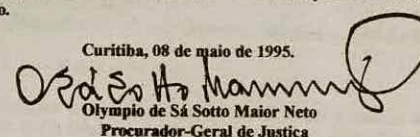 o.
Curitiba, 08 de maio de 1995.
Olympio de Sá Sotto Maior Neto
Procurador-Geral de Justiça